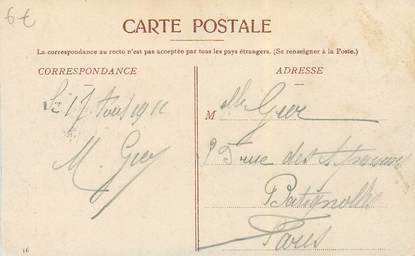 6€
CARTE POSTALE
La correspondance au recto n'est pas acceptée par tous les pays étrangers. (Se renseigner à la Poste.)
CORRESPONDANCE
Le 17 Aout 1911
M.
ADRESSE
Mlle
rue des
Batignolles
Paris
16